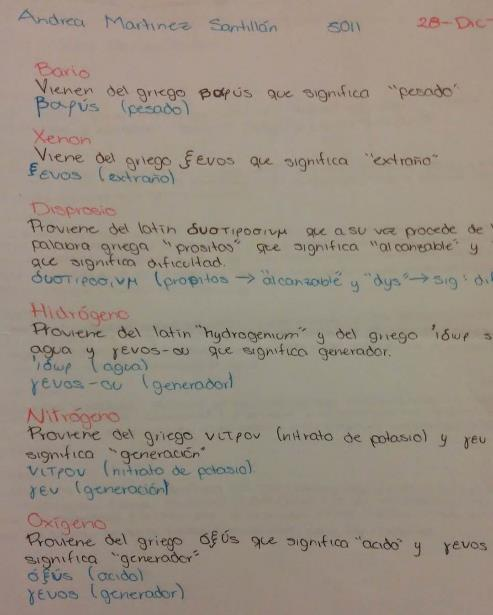 Andrea Martinez Santillán 5011 28-Dic-
Bario
Vienen del griego βαρύs que significa "pesado"
βαρύs (pesado)
Xenon
Viene del griego ξενοs que significa "extraño"
ξενοs (extraño)
Disprosio
Proviene del latín δυσπροσιυм que a su vez procede de
palabra griega "prositos" que significa "alcanzable" y
que significa dificultad.
δυσπροσιυм (propitos → "alcanzable" y "dys" → sig: di
Hidrógeno
Proviene del latin "hydrogenium" y del griego 'ιδωρ s
agua y γενοs-ου que significa generador.
'ιδωρ (agua)
γενοs-ου (generador)
Nitrógeno
Proviene del griego νιτρον (nitrato de potasio) y γεν
significa "generación"
νιτρον (nitrato de potasio)
γεν (generación)
Oxígeno
Proviene del griego όξύs que significa "acido" y γενοs
significa "generador"
όξύs (acido)
γενοs (generador)